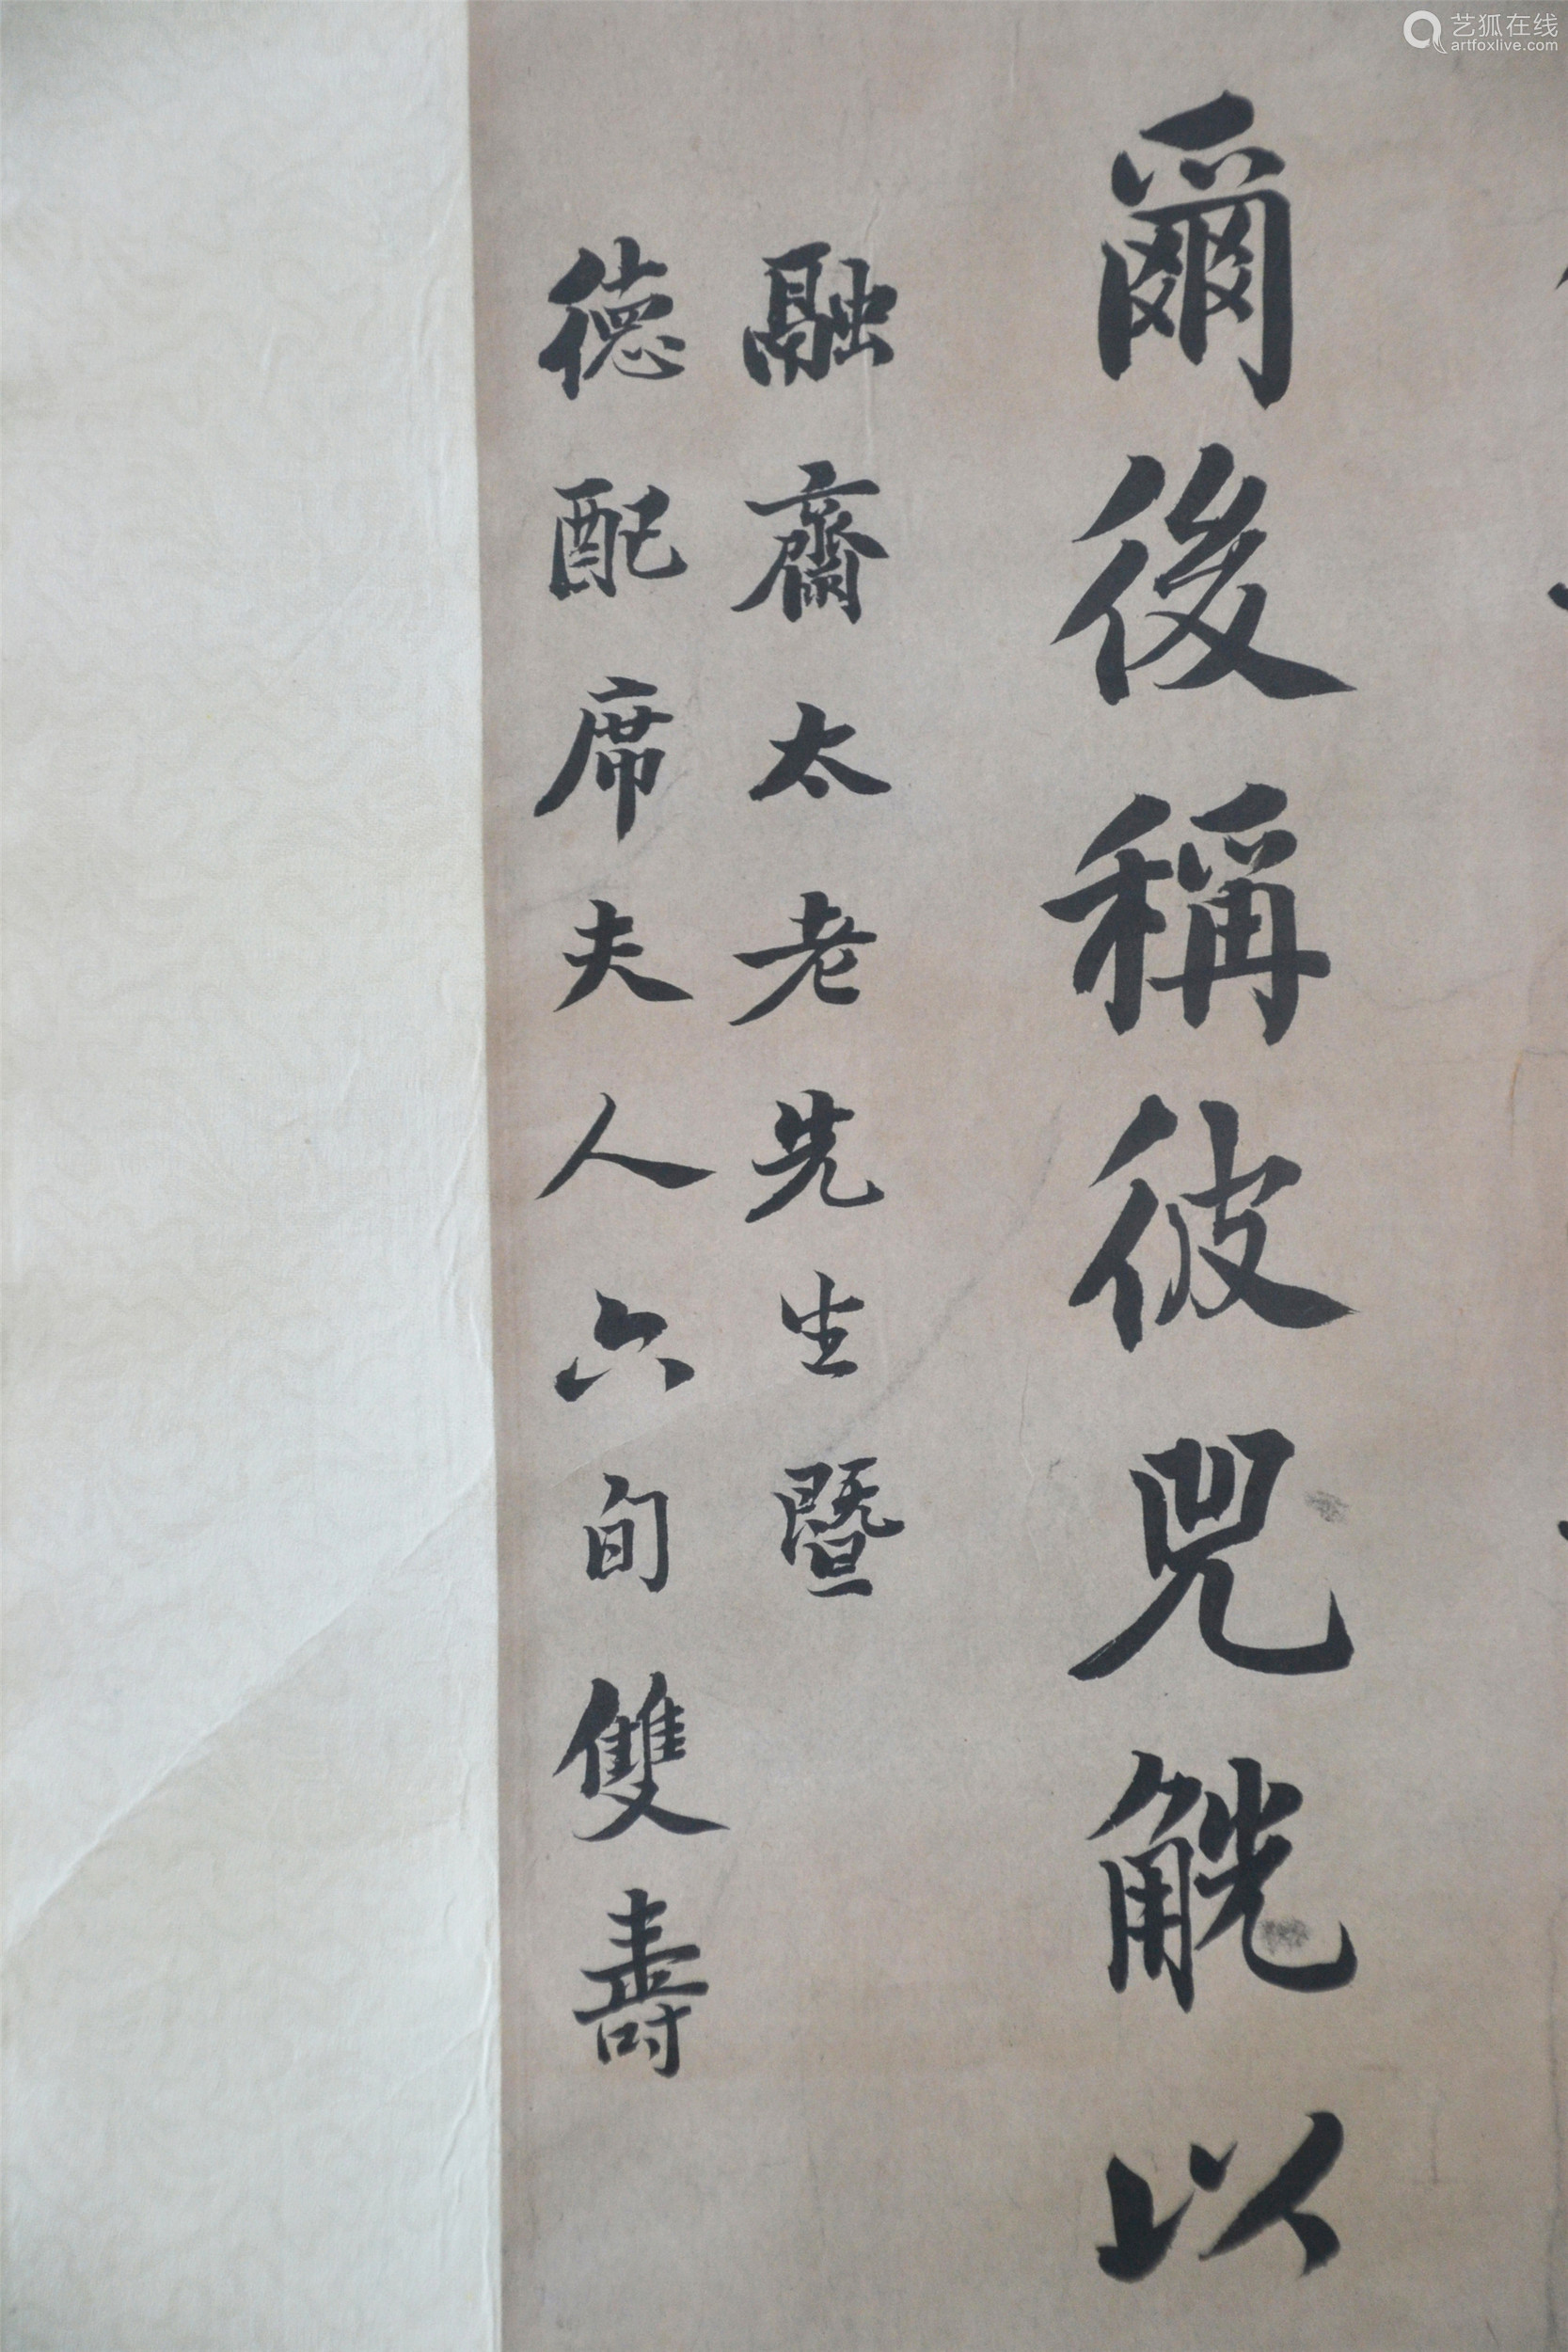 爾後稱彼兕觥以
融齋太老先生暨
德配席夫人六旬雙壽
艺狐在线
artfoxlive.com